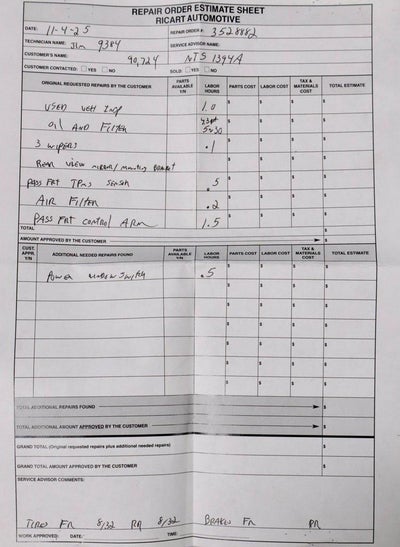 REPAIR ORDER ESTIMATE SHEET
RICART AUTOMOTIVE
DATE: 11-4-25 REPAIR ORDER #: 3528882
TECHNICIAN NAME: Jim 9384 SERVICE ADVISOR NAME:
CUSTOMER'S NAME: 90,724 NTS 1394A
CUSTOMER CONTACTED: YES NO SOLD: YES NO
ORIGINAL REQUESTED REPAIRS BY THE CUSTOMER PARTS AVAILABLE Y/N LABOR HOURS PARTS COST LABOR COST TAX & MATERIALS COST TOTAL ESTIMATE
USED VEH Insp 1.0 $ $ $ $
oil AND FILTER 5w30 $ $ $ $
3 WIPERS .1 $ $ $ $
REAR VIEW MIRROR/ Mounting BRACKET $ $ $ $
PASS FRT TPMS SENSOR .5 $ $ $ $
AIR FILTER .2 $ $ $ $
PASS FRT CONTROL ARM 1.5 $ $ $ $
TOTAL
AMOUNT APPROVED BY THE CUSTOMER $
CUST. APPR. Y/N ADDITIONAL NEEDED REPAIRS FOUND PARTS AVAILABLE Y/N LABOR HOURS PARTS COST LABOR COST TAX & MATERIALS COST TOTAL ESTIMATE
Power window switch .5 $ $ $ $
$ $ $ $
$ $ $ $
$ $ $ $
$ $ $ $
$ $ $ $
$ $ $ $
TOTAL ADDITIONAL REPAIRS FOUND $
TOTAL ADDITIONAL AMOUNT APPROVED BY THE CUSTOMER $
GRAND TOTAL (Original requested repairs plus additional needed repairs) $
GRAND TOTAL AMOUNT APPROVED BY THE CUSTOMER $
SERVICE ADVISOR COMMENTS:
TIRES FR 8/32 RR 8/32 BRAKES FR RR
WORK APPROVED: DATE: TIME: